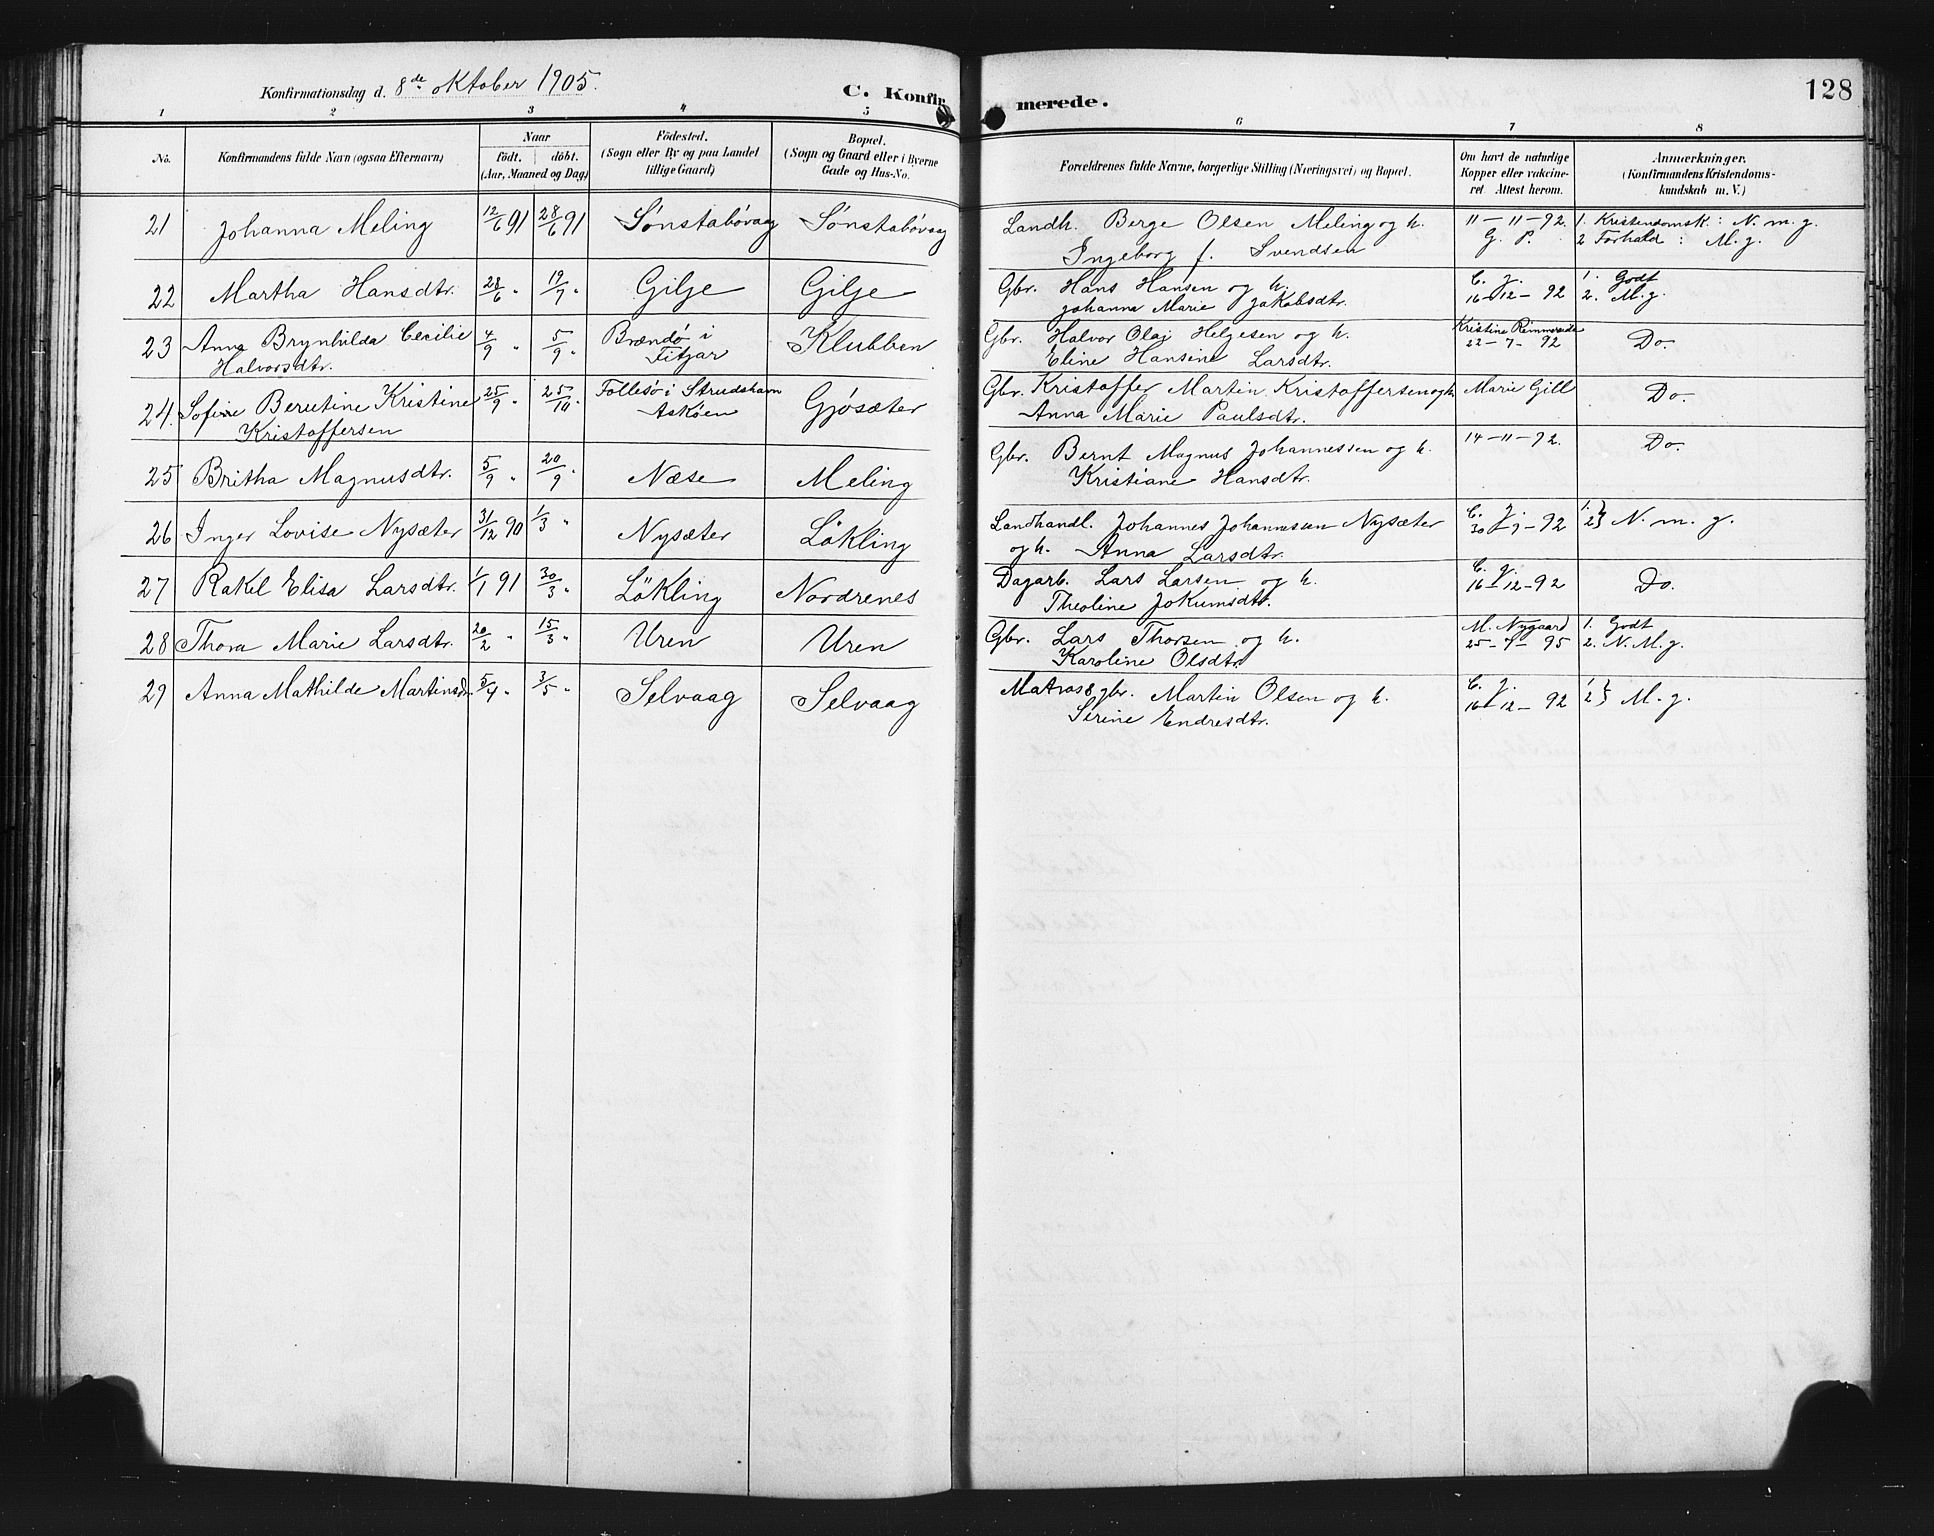 Konfirmationsdag d. 8de oktober 1905.
C. Konfirmerede.
128
1 2 3 4 5 6 7 8
No. Konfirmandens fulde Navn (ogsaa Efternavn) Naar födt. döbt. (Aar, Maaned og Dag) Födested. (Sogn eller By og paa Landet tillige Gaard) Bopæl. (Sogn og Gaard eller i Byerne Gade og Hus-No. Forældrenes fulde Navne, borgerlige Stilling (Næringsvei) og Bopæl. Om havt de naturlige Kopper eller vaccineret. Attest herom. Anmærkninger. (Konfirmandens Kristendomskundskab m. V.)
21 Johanna Meling 12/6 91 28/6 91 Sønstabøvaag Sønstabøvaag Landh. Berge Olsen Meling og h. 11-11-92 1. Kristendomsk: N. m. g.
Ingeborg f. Svendsen G. P. 2 Forhold : M. g.
22 Martha Hansdtr. 28/6 " 19/7 " Gilje Gilje Gbr. Hans Hansen og h. C. J. 1. Godt
Johanna Marie Jakobsdtr. 16-12-92 2. M. g.
23 Anna Brynhilda Cecilie 4/9 " 5/9 " Brændø i Klubben Gbr. Halvor Olaj Helgesen og h. Kristine Rimmereide Do.
Halvorsdtr. Fitjar Eline Hansine Larsdtr. 22-7-92
24. Sofine Berntine Kristine 25/9 " 25/10 " Follesø i Strudshavn Gjøsæter Gbr. Kristoffer Martin Kristoffersen og h. Marie Gill Do.
Kristoffersen Askøen Anna Marie Paulsdtr.
25 Britha Magnusdtr. 5/9 " 20/9 " Næse Meling Gbr. Bernt Magnus Johannessen og h. 14-11-92. Do.
Kristiane Hansdtr.
26 Inger Lovise Nysæter 31/12 90 1/3 " Nysæter Lökling Landhandl. Johannes Johannessen Nysæter C. J. 1. 2} N. m. g.
og h. Anna Larsdtr. 30-9-92
27 Rakel Elisa Larsdtr. 1/1 91 30/3 " Lökling Nordrenes Dagarb. Lars Larsen og h. C. J. Do.
Theoline Jokumsdtr. 16-12-92
28 Thora Marie Larsdtr. 20/2 " 15/3 " Uren Uren Gbr. Lars Thorsen og h. M. Nygaard 1. Godt
Karoline Olsdtr. 25-7-95 2. N. M. g.
29 Anna Mathilde Martinsdtr 5/4 " 3/5 " Selvaag Selvaag Matros & gbr. Martin Olsen og h. C. J. 1 2} M. g.
Serine Endresdtr. 16-12-92